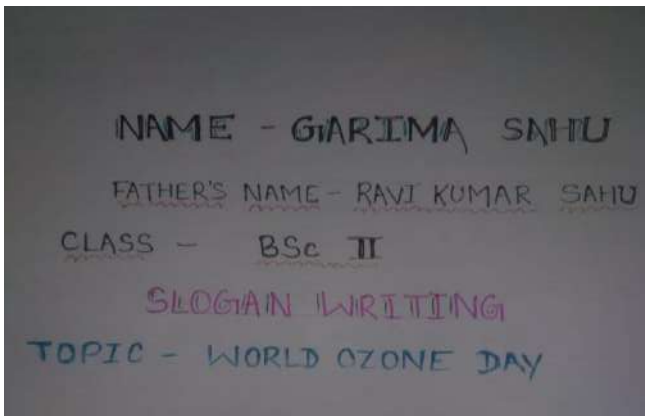 NAME - GARIMA SAHU
FATHER'S NAME - RAVI KUMAR SAHU
CLASS - BSc II
SLOGAN WRITING
TOPIC - WORLD OZONE DAY